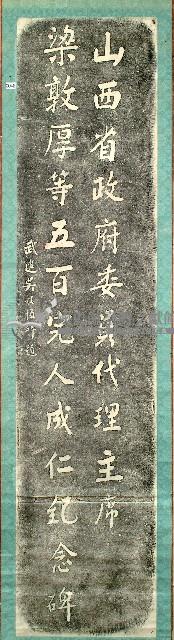 山西省政府委員代理主席
梁敦厚等五百完人成仁紀念碑
武進吳敬恆